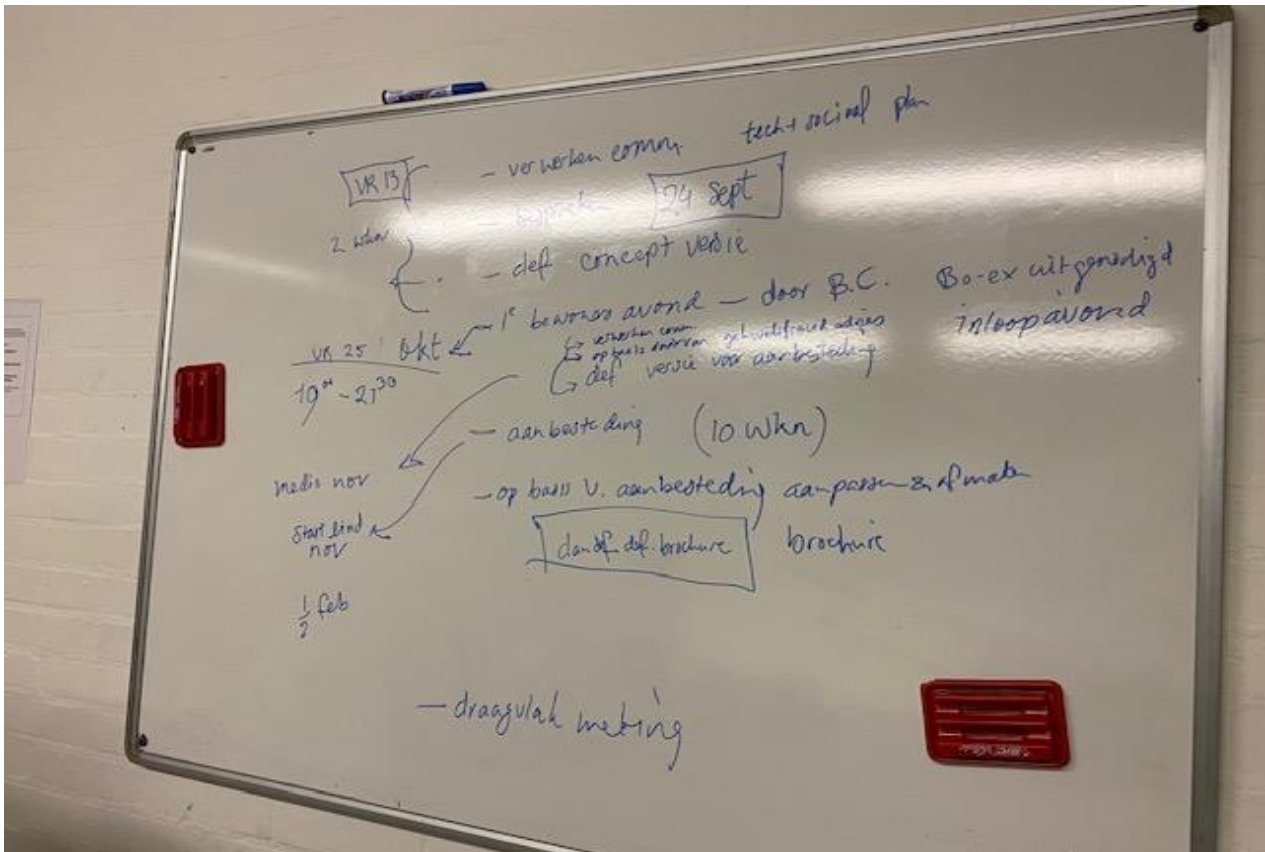 VR 13 - verwerken comm. tech + sociaal plan
- bespreken 24 sept
2 wkn
- def concept versie
- 1e bewoners avond - door B.C. Bo-ex uitgenodigd
inloopavond
VR 25 okt
19 00 - 21 30
verwerken comm.
op basis daarvan gekwalificeerd advies
def versie voor aanbesteding
- aanbesteding (10 wkn)
medio nov
- op basis v. aanbesteding aanpassen & afmaken
brochure
Start eind
nov
dan def. brochure
1/2 feb
- draagvlak meting